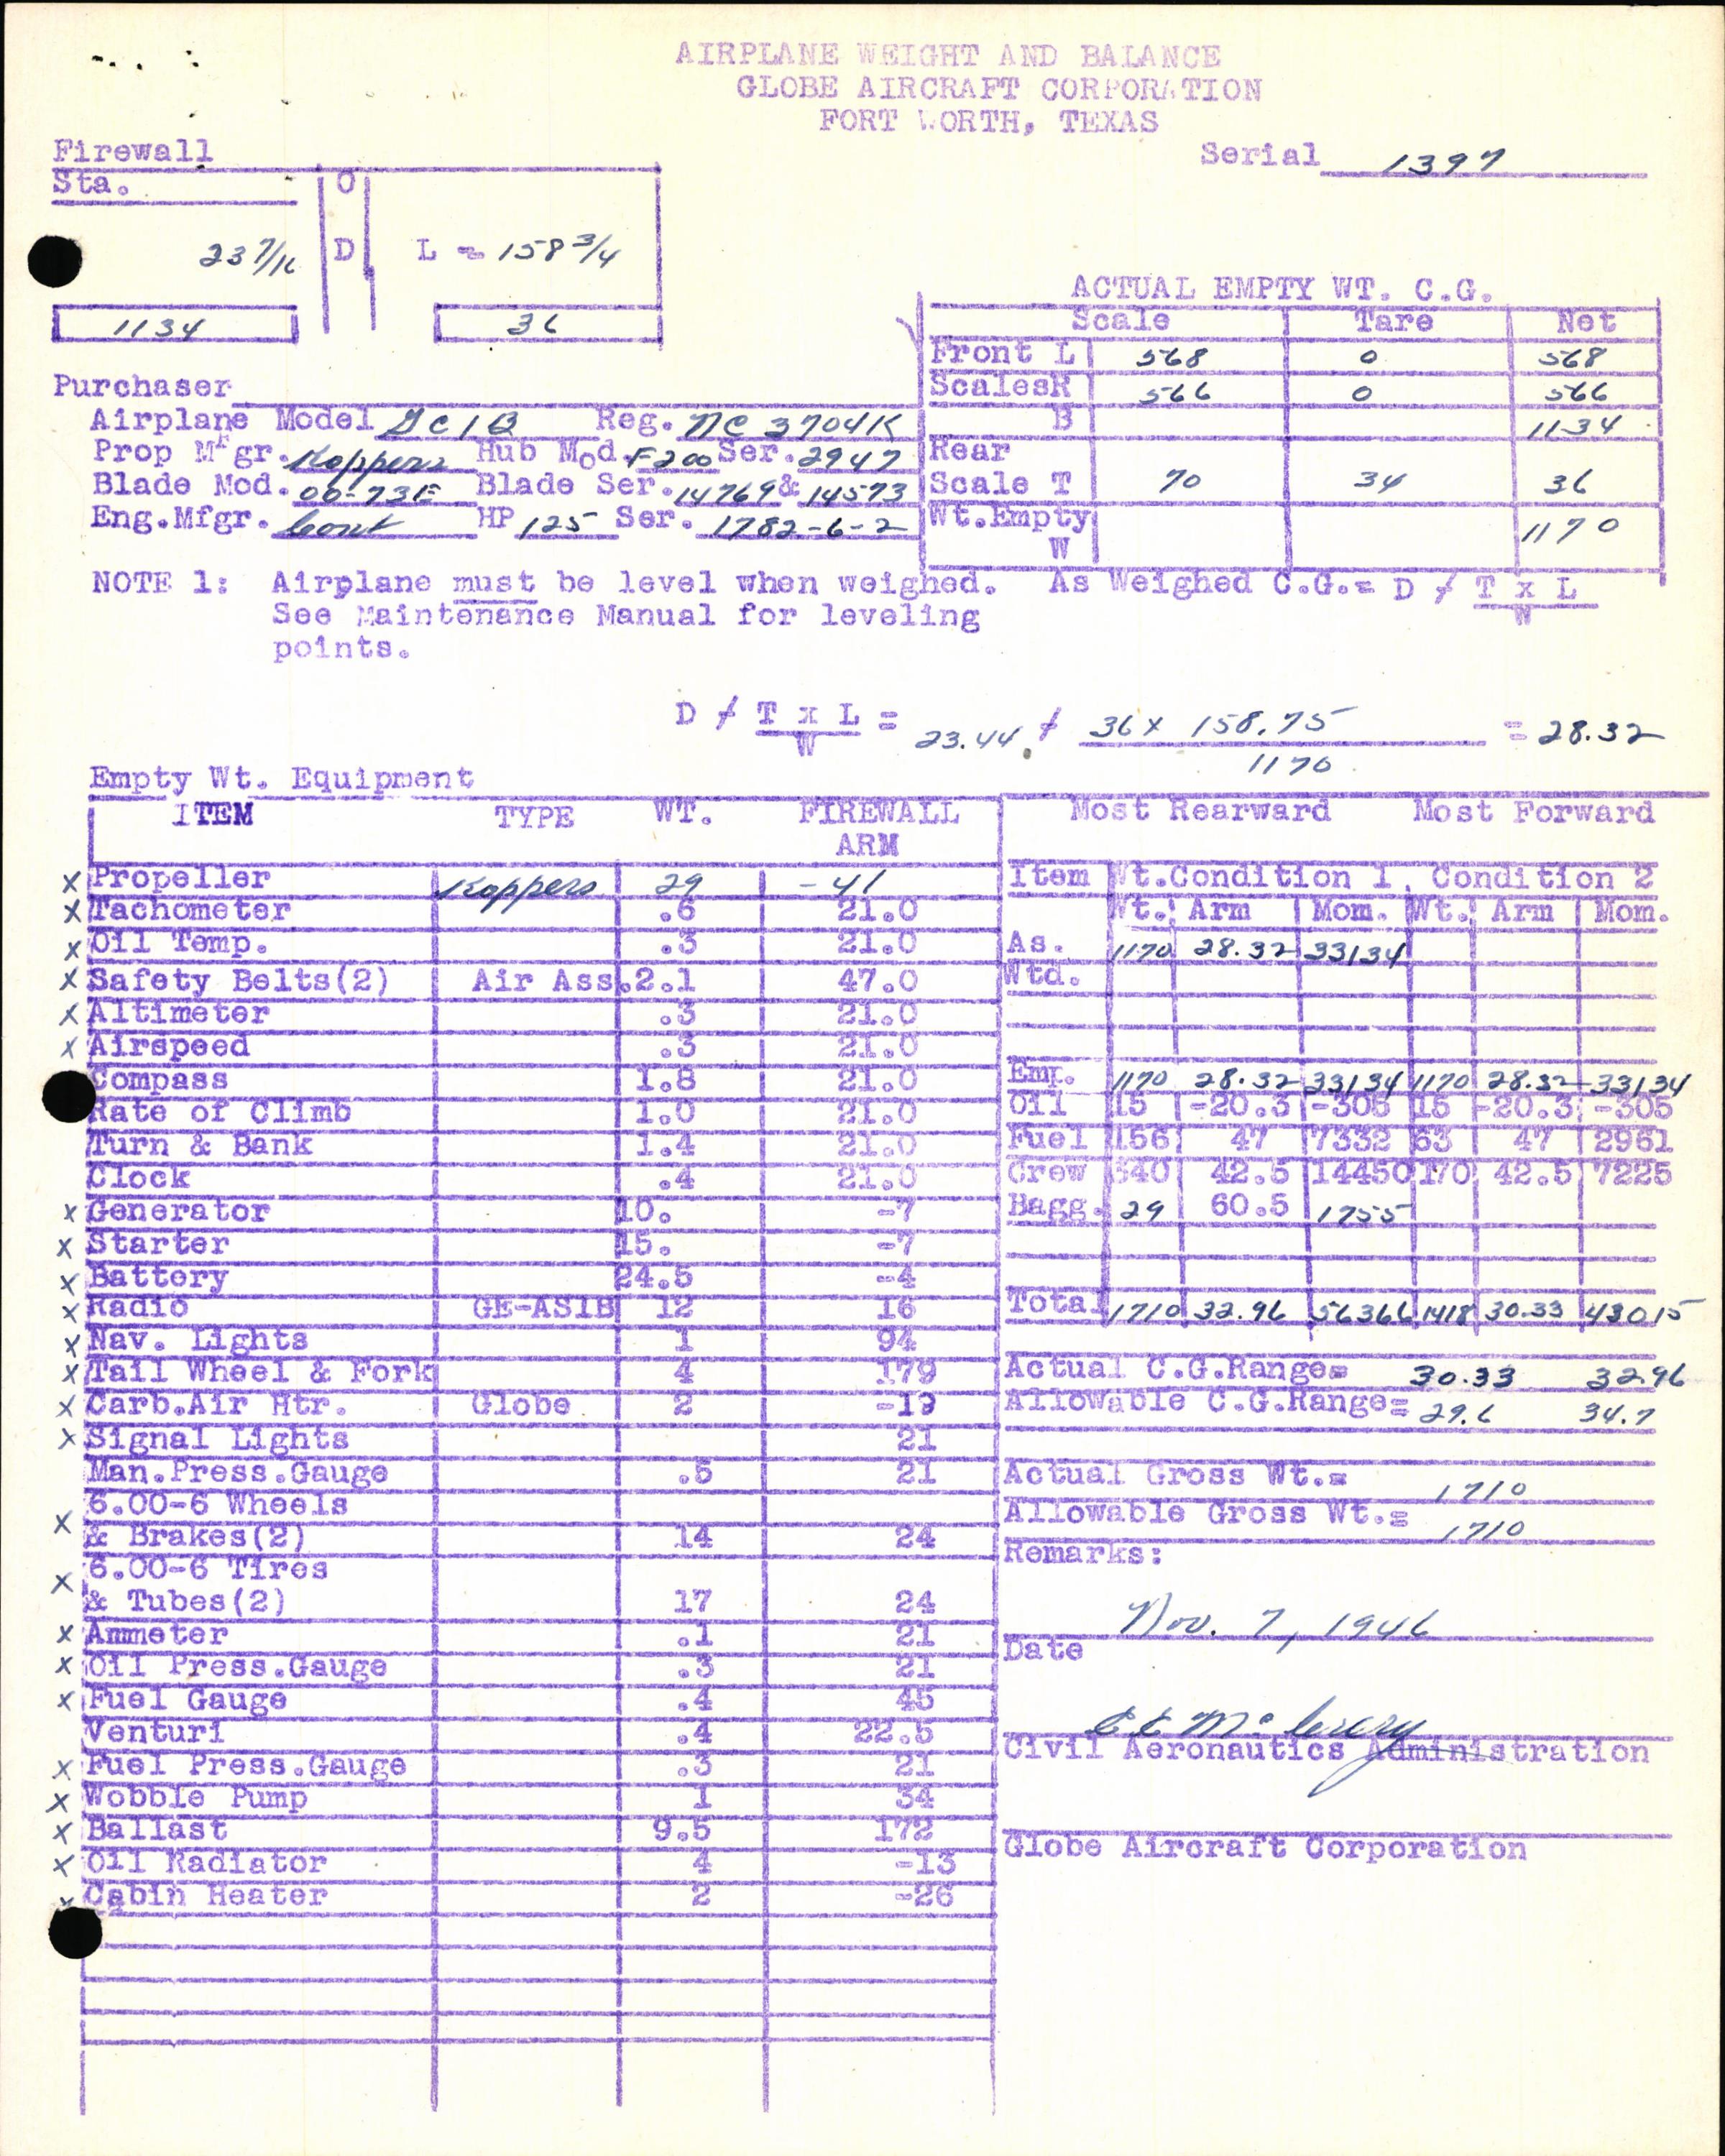 AIRPLANE WEIGHT AND BALANCE
GLOBE AIRCRAFT CORPORATION
FORT WORTH, TEXAS
Serial 1397
Firewall
Sta. O
23 7/16 D L = 158 3/4
1134 36
ACTUAL EMPTY WT. C.G.
Scale Tare Net
Front L 568 0 568
Scales R 566 0 566
B 1134
Rear
Scale T 70 34 36
Wt.Empty 1170
W
Purchaser
Airplane Model GC1B Reg. NC 3704K
Prop Mfgr. Koppers Hub Mod. F200 Ser. 2947
Blade Mod. 00-73E Blade Ser. 14769 & 14573
Eng.Mfgr. Cont HP 125 Ser. 1782-6-2
NOTE 1: Airplane must be level when weighed.
See Maintenance Manual for leveling
points.
As Weighed C.G.= D / T x L
W
D / T x L = 23.44 / 36 x 158.75 = 28.32
W 1170
Empty Wt. Equipment
ITEM TYPE WT. FIREWALL
ARM
x Propeller Koppers 29 -41
x Tachometer .6 21.0
x Oil Temp. .3 21.0
x Safety Belts(2) Air Ass. 2.1 47.0
x Altimeter .3 21.0
x Airspeed .3 21.0
Compass 1.8 21.0
Rate of Climb 1.0 21.0
Turn & Bank 1.4 21.0
Clock .4 21.0
x Generator 10. -7
x Starter 15. -7
x Battery 24.5 -4
x Radio GE-AS1B 12 16
x Nav. Lights 1 94
x Tail Wheel & Fork 4 179
x Carb.Air Htr. Globe 2 -19
x Signal Lights 21
Man.Press.Gauge .5 21
6.00-6 Wheels
x & Brakes(2) 14 24
6.00-6 Tires
x & Tubes(2) 17 24
x Ammeter .1 21
x Oil Press.Gauge .3 21
x Fuel Gauge .4 45
Venturi .4 22.5
x Fuel Press.Gauge .3 21
x Wobble Pump 1 34
x Ballast 9.5 172
x Oil Radiator 4 -13
x Cabin Heater 2 -26
Most Rearward Most Forward
Item Wt.Condition 1, Condition 2
Wt. Arm Mom. Wt. Arm Mom.
As. 1170 28.32 33134
Wtd.
Emp. 1170 28.32 33134 1170 28.32 33134
Oil 15 -20.3 -305 15 -20.3 -305
Fuel 156 47 7332 63 47 2961
Crew 340 42.5 14450 170 42.5 7225
Bagg. 29 60.5 1755
Total 1710 32.96 56366 1418 30.33 43015
Actual C.G.Range= 30.33 32.96
Allowable C.G.Range= 29.6 34.7
Actual Gross Wt.= 1710
Allowable Gross Wt.= 1710
Remarks:
Nov. 7, 1946
Date
Civil Aeronautics Administration
Globe Aircraft Corporation